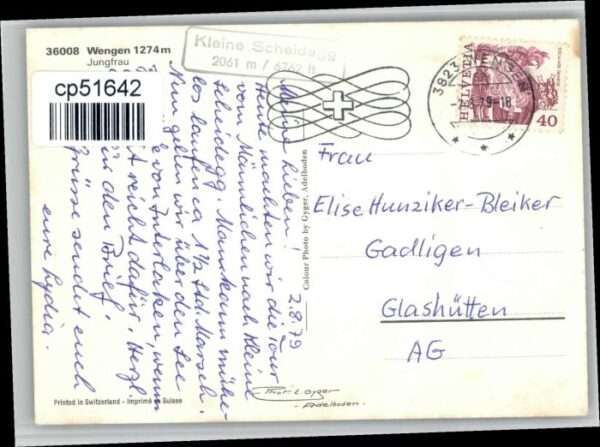 36008 Wengen 1274 m
Jungfrau
cp51642
Kleine Scheidegg
2061 m / 6762 ft
3823 WENGEN
79-18
HELVETIA
40
2.8.79
Meine Lieben!
Heute machten wir die Tour
vom Männlichen nach Kleine
Scheidegg. Man kann mühe-
los laufen ca 1½ Std. Marsch.
Nun gehen wir über den See
von Interlaken, wenn
reicht dafür. Herzl.
den Brief.
grüsse sendet euch
eure Lydia.
Colour Photo by Gyger, Adelboden
Frau
Elise Hunziker-Bleiker
Gadligen
Glashütten
AG
Gyger
Adelboden
Printed in Switzerland - Imprimé en Suisse